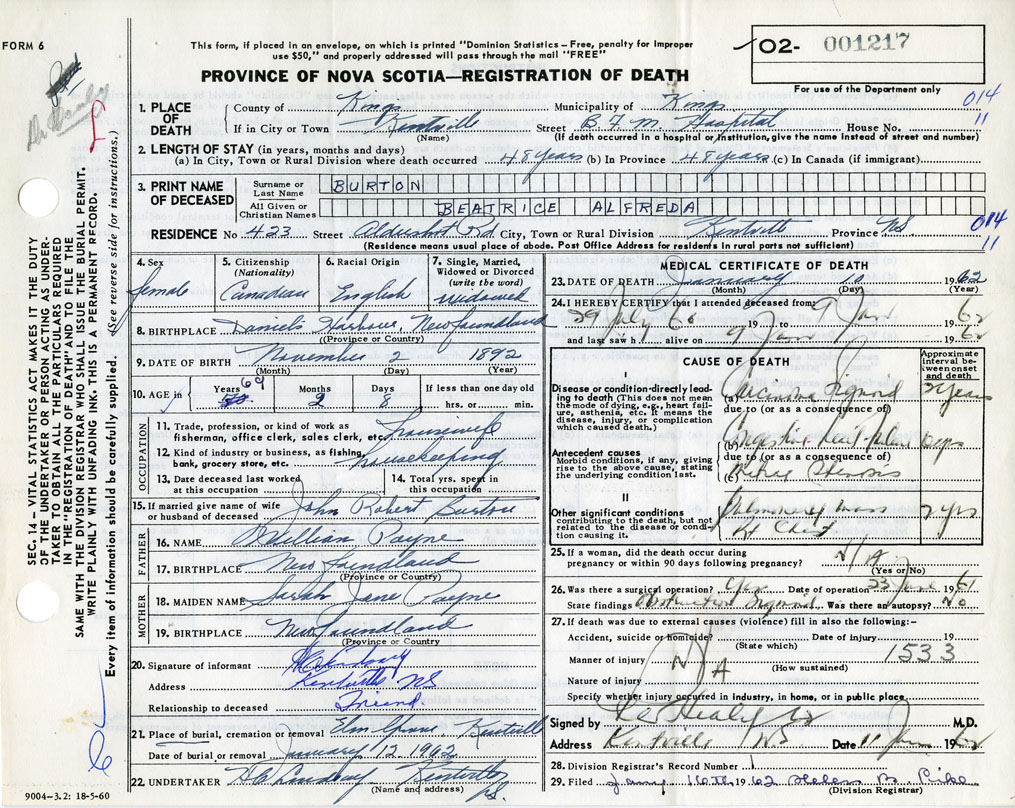 FORM 6
This form, if placed in an envelope, on which is printed "Dominion Statistics - Free, penalty for Improper
use $50," and properly addressed will pass through the mail "FREE"
PROVINCE OF NOVA SCOTIA—REGISTRATION OF DEATH
02- 001217
For use of the Department only
014
11
1. PLACE OF DEATH
County of Kings Municipality of Kings
If in City or Town Kentville Street B.F.M. Hospital House No.
(Name) (If death occurred in a hospital or institution, give the name instead of street and number)
2. LENGTH OF STAY (in years, months and days)
(a) In City, Town or Rural Division where death occurred 48 years (b) In Province 48 years (c) In Canada (if immigrant)
3. PRINT NAME OF DECEASED
Surname or Last Name BURTON
All Given or Christian Names BEATRICE ALFREDA
RESIDENCE No 423 Street Aldershot Rd City, Town or Rural Division Kentville Province NS
(Residence means usual place of abode. Post Office Address for residents in rural parts not sufficient)
014
11
4. Sex female
5. Citizenship (Nationality) Canadian
6. Racial Origin English
7. Single, Married, Widowed or Divorced (write the word) Widowed
8. BIRTHPLACE Daniel's Harbour, Newfoundland
(Province or Country)
9. DATE OF BIRTH November 2 1892
(Month) (Day) (Year)
10. AGE in Years 69 Months 2 Days 8 If less than one day old hrs. or min.
OCCUPATION
11. Trade, profession, or kind of work as fisherman, office clerk, sales clerk, etc. housewife
12. Kind of industry or business, as fishing, bank, grocery store, etc. housekeeping
13. Date deceased last worked at this occupation
14. Total yrs. spent in this occupation
15. If married give name of wife or husband of deceased John Robert Burton
FATHER
16. NAME William Payne
17. BIRTHPLACE Newfoundland
(Province or Country)
MOTHER
18. MAIDEN NAME Sarah Jane Payne
19. BIRTHPLACE Newfoundland
(Province or Country
20. Signature of informant
Address Kentville NS
Relationship to deceased Friend.
21. Place of burial, cremation or removal Elm Grove Kentville
Date of burial or removal January 12 1962
22. UNDERTAKER Kentville
(Name and address) NS.
MEDICAL CERTIFICATE OF DEATH
23. DATE OF DEATH January 10 1962
(Month) (Day) (Year)
24. I HEREBY CERTIFY that I attended deceased from
29 July 60 19 to 9 Jan 1962
and last saw h alive on 9 Jan 1962
CAUSE OF DEATH
Approximate interval between onset and death
I
Disease or condition directly leading to death (This does not mean the mode of dying, e.g., heart failure, asthenia, etc. It means the disease, injury, or complication which caused death.)
(a) Carcinoma Sigmoid 2 years
due to (or as a consequence of)
Antecedent causes
Morbid conditions, if any, giving rise to the above cause, stating the underlying condition last.
(b) Congestive heart failure days
due to (or as a consequence of)
(c)
II
Other significant conditions
contributing to the death, but not related to the disease or condition causing it.
Pulmonary mass
Chest
2 yrs
25. If a woman, did the death occur during pregnancy or within 90 days following pregnancy? N/A
(Yes or No)
26. Was there a surgical operation? Yes Date of operation 23 June 1961
State findings Obstruction Sigmoid Was there an autopsy? No
27. If death was due to external causes (violence) fill in also the following:-
Accident, suicide or homicide? Date of injury 19
(State which)
1533
Manner of injury N/A
(How sustained)
Nature of injury
Specify whether injury occurred in industry, in home, or in public place
Signed by Healy M.D.
Address Kentville NS Date 11 Jan 1962
28. Division Registrar's Record Number 1
29. Filed Jany 16th 1962 Helen B. Pike
(Division Registrar)
SEC. 14 - VITAL STATISTICS ACT MAKES IT THE DUTY
OF THE UNDERTAKER OR PERSON ACTING AS UNDER-
TAKER TO OBTAIN ALL THE PARTICULARS REQUIRED
IN THE "REGISTRATION OF DEATH" AND TO FILE THE
SAME WITH THE DIVISION REGISTRAR WHO SHALL ISSUE THE BURIAL PERMIT.
WRITE PLAINLY WITH UNFADING INK. THIS IS A PERMANENT RECORD.
Every item of information should be carefully supplied. (See reverse side for instructions.)
9004-3.2: 18-5-60